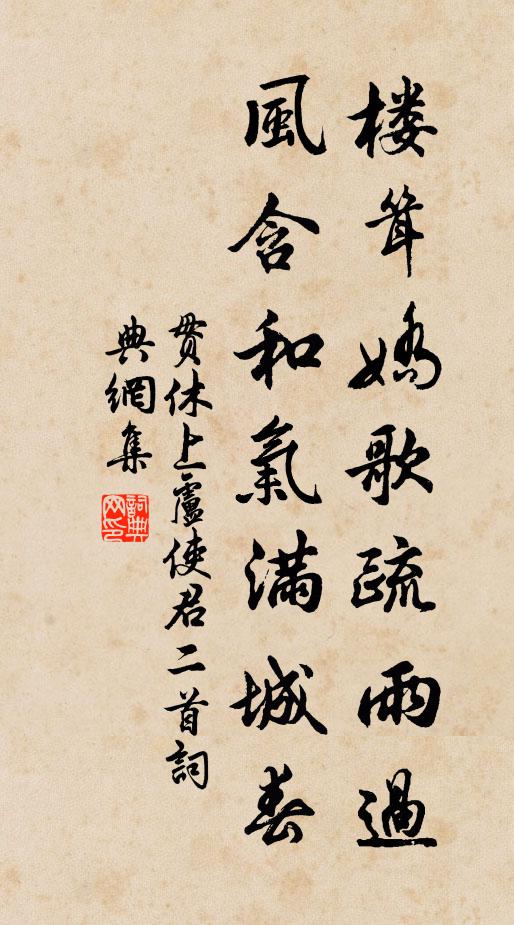 楼耸娇歌疏雨過
風含和氣滿城春
贯休上盧使君二首詞
典網集
詞典网印